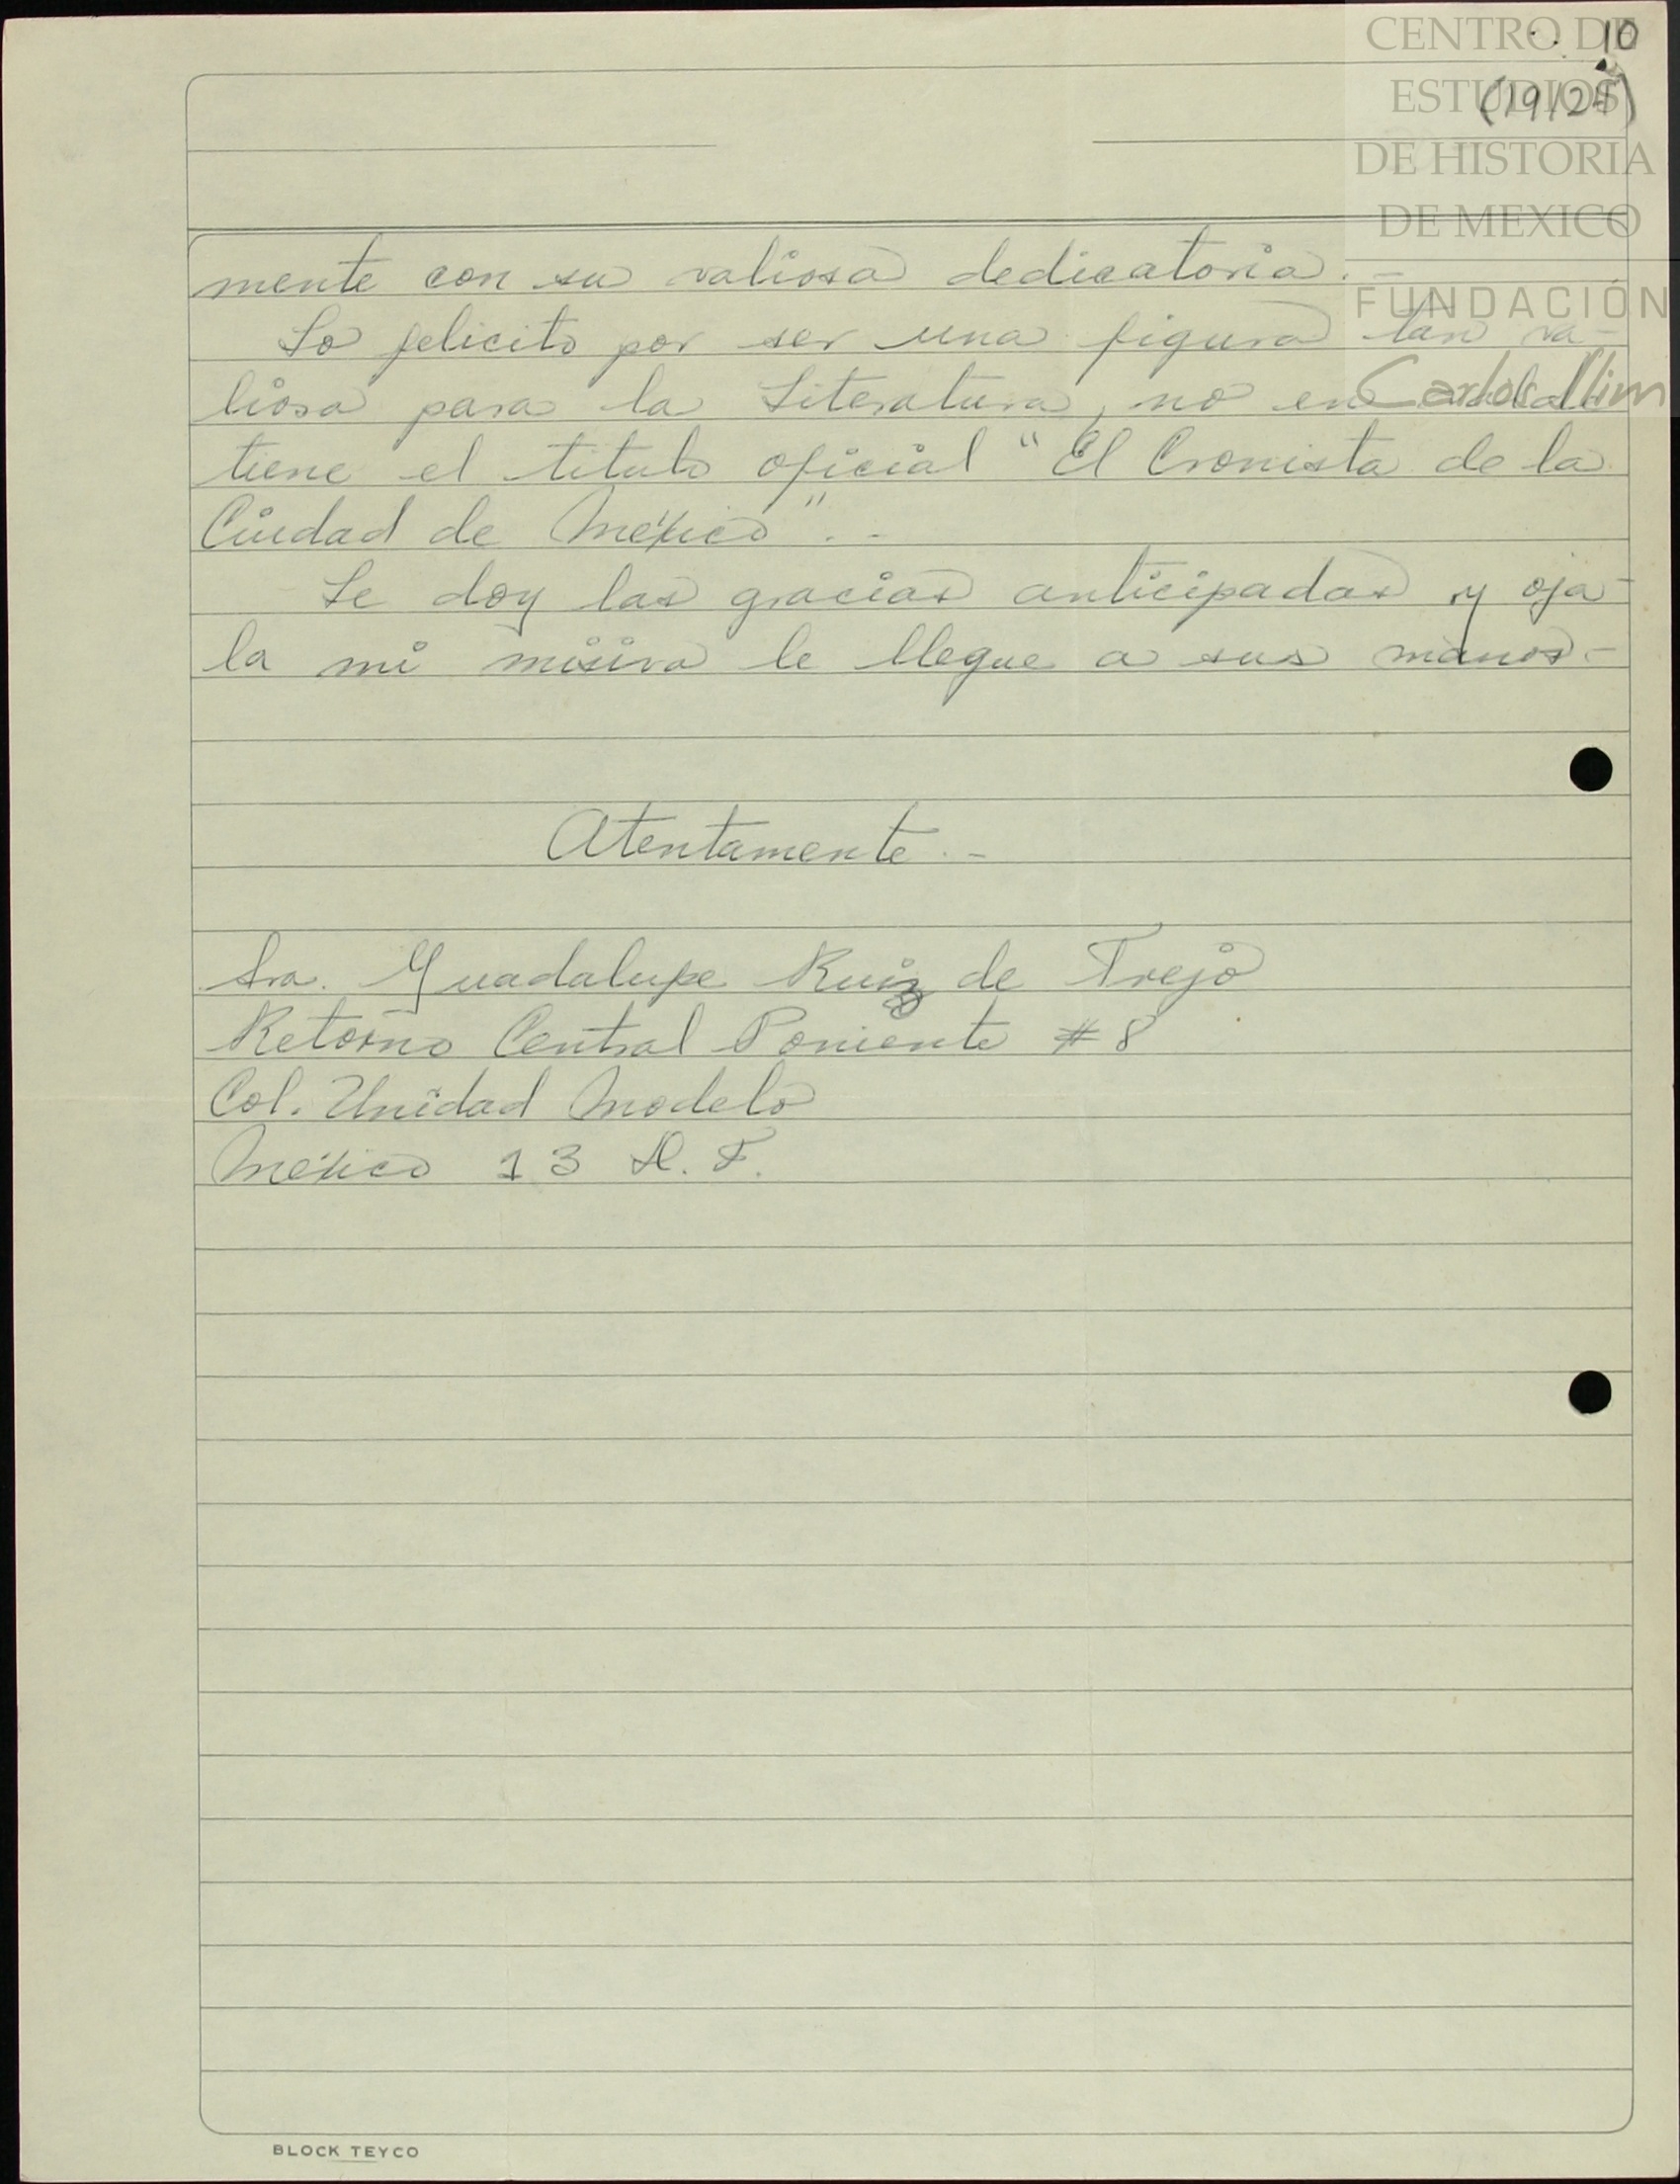 CENTRO DE
ESTUDIOS
DE HISTORIA
DE MEXICO
FUNDACIÓN
Carlos Slim
10
(19/24)
mente con su valiosa dedicatoria.-
Lo felicito por ser una figura tan va-
liosa para la Literatura, no en
tiene el titulo oficial "El Cronista de la
Ciudad de México".-
Le doy las gracias anticipadas y oja-
la mi misiva le llegue a sus manos.-
Atentamente.-
Sra. Guadalupe Ruiz de Trejo
Retorno Central Poniente #8
Col. Unidad Modelo
México 13 D.F.
BLOCK TEYCO